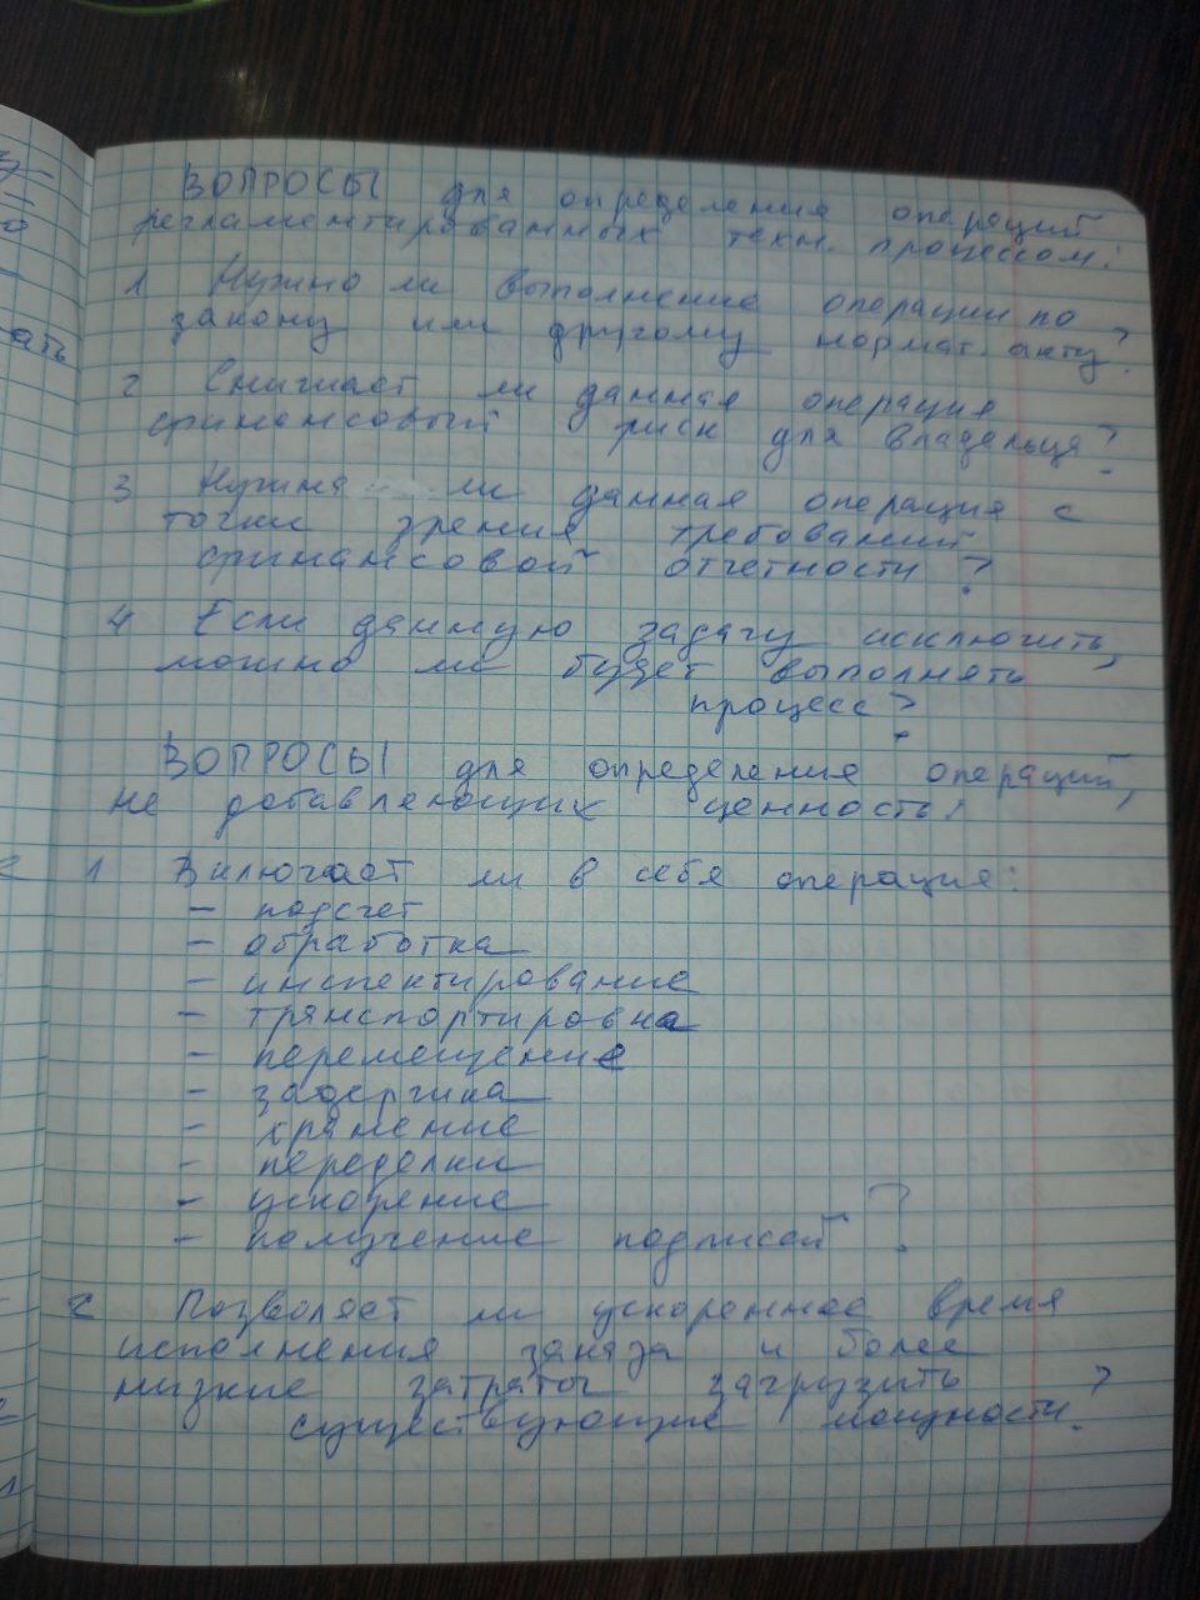 ВОПРОСЫ для определения операций
регламентированных техн. процессом:
1 Нужно ли выполнение операции по
закону или другому нормат. акту?
2 Снижает ли данная операция
финансовый риск для владельца?
3 Нужна ли данная операция с
точки зрения требований
финансовой отчетности?
4 Если данную задачу исключить,
можно ли будет выполнять
процесс?
ВОПРОСЫ для определения операций,
не добавляющих ценность:
1 Включает ли в себя операция:
- подсчет
- обработка
- инспектирование
- транспортировка
- перемещение
- задержка
- хранение
- переделки
- ускорение
- получение подписей ?
2 Позволяет ли ускоренное время
исполнения заказа и более
низкие затраты загрузить
существующие мощности?
ать